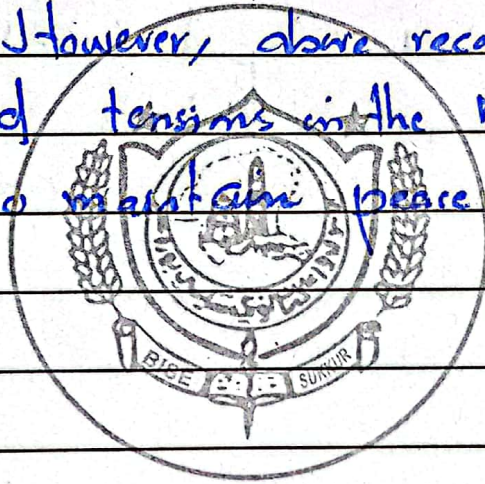 However, above reco
d tensions in the
o maintain peace
BISE SUKKUR